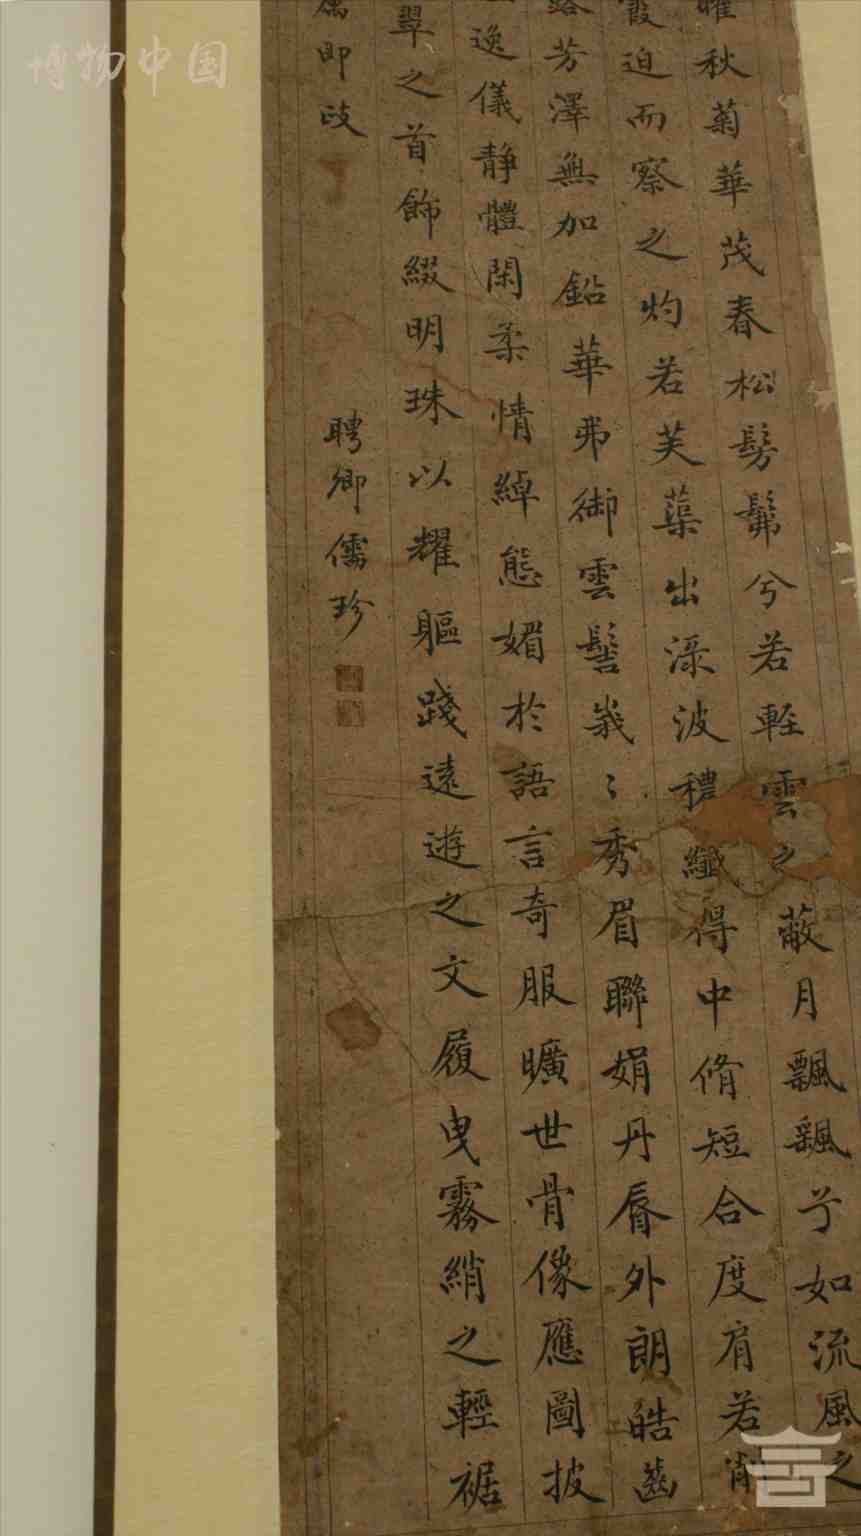 博物中国
曜秋菊華茂春松髣髴兮若輕雲之蔽月飄飖兮如流風之
霞迫而察之灼若芙蕖出渌波穠纖得中脩短合度肩若削
露芳澤無加鉛華弗御雲髻峩〻秀眉聯娟丹脣外朗皓齒
逸儀靜體閑柔情綽態媚於語言奇服曠世骨像應圖披
翠之首飾綴明珠以耀軀踐遠遊之文履曳霧綃之輕裾
屬即政 聘卿儒珍